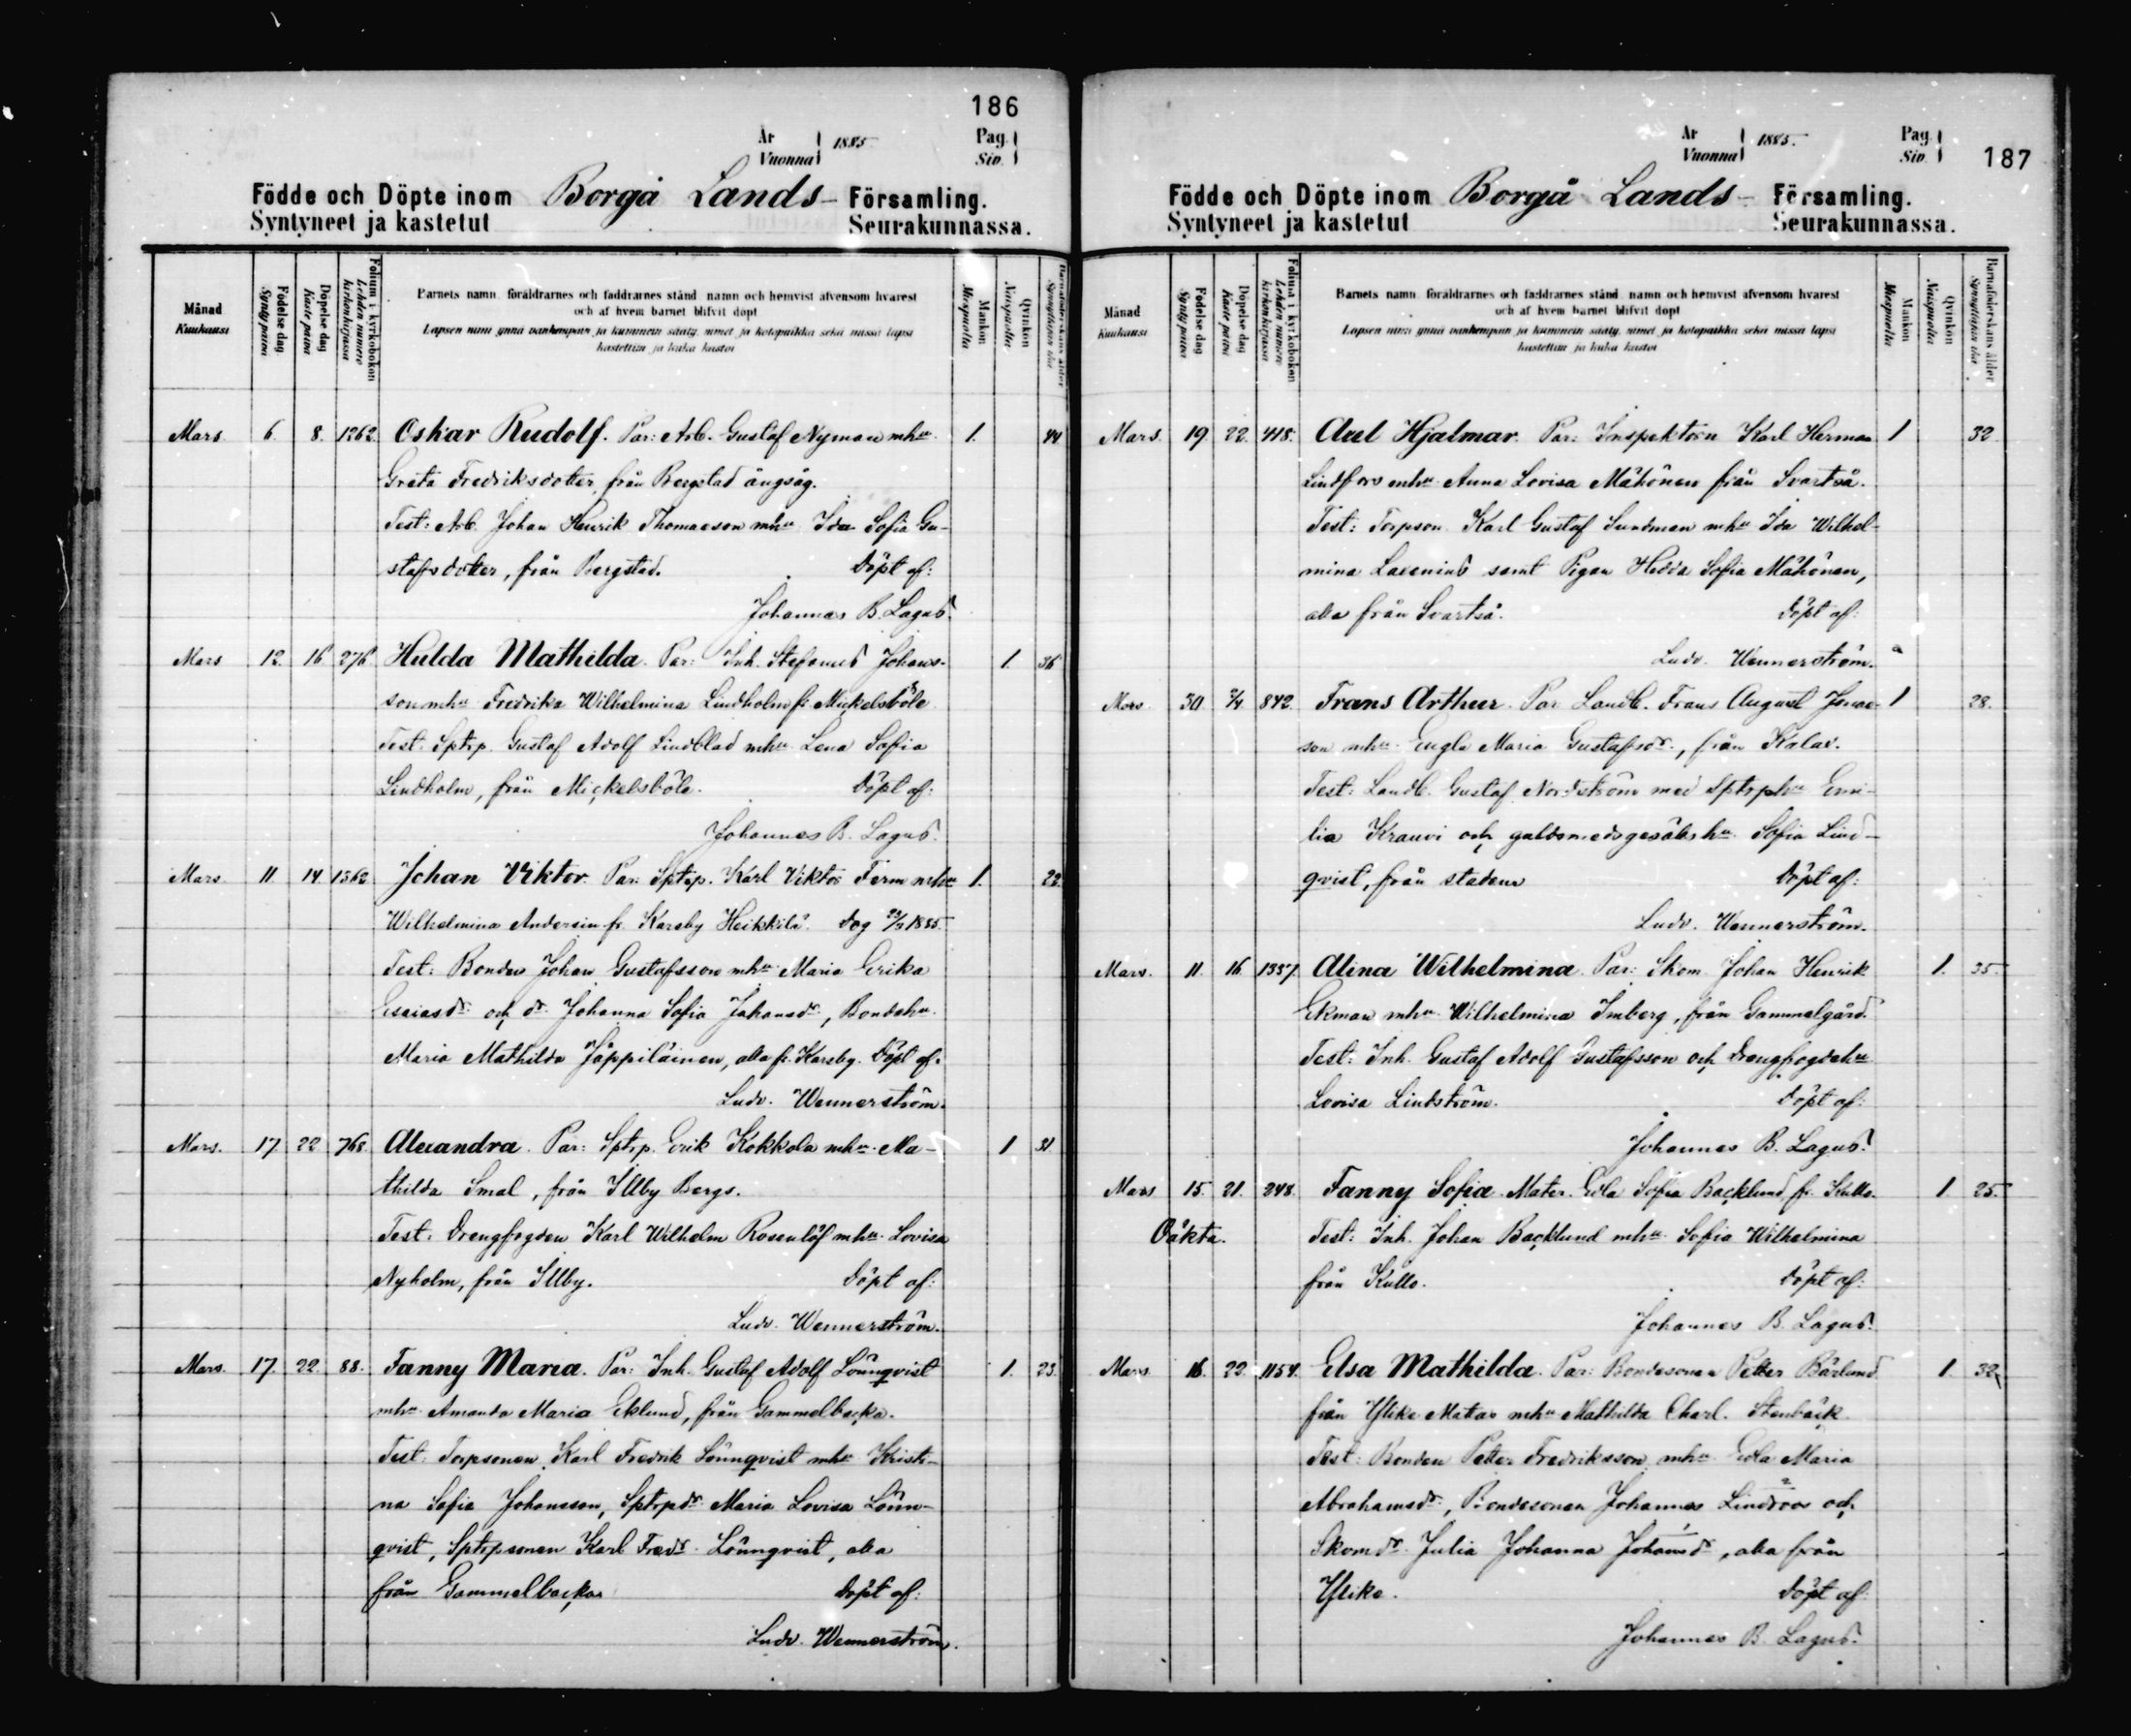 186
År Vuonna 1885 Pag. Siv.
Födde och Döpte inom Borgå Lands- Församling.
Syntyneet ja kastetut Seurakunnassa.
Månad Kuukausi
Födelsedag Syntypäivä
Döpelsedag Kastepäivä
Folium i kyrkoboken Lehden numero kirkonkirjassa
Barnets namn, föräldrarnes och faddrarnes stånd, namn och hemvist äfvensom hvarest
och af hvem barnet blifvit döpt
Lapsen nimi ynnä vanhempain ja kummein sääty, nimet ja kotopaikka sekä missä lapsi
kastettiin ja kuka kastoi
Mankön Miespuolta
Qvinkön Naispuolta
Barnaföderskans ålder Synnyttäjän ikä
Mars. 6. 8. 1262. Oskar Rudolf. Par: Arb. Gustaf Nyman mhu 1. 44
Greta Fredriksdotter, från Bergstad ångsåg.
Test: Arb. Johan Henrik Thomasson mhu Ida Sofia Gu-
stafsdotter, från Bergstad. Döpt af:
Johannes B. Lagus.
Mars 12. 16. 276 Hulda Mathilda. Par: Inh. Stefanus Johans- 1. 36
son mhu Fredrika Wilhelmina Lindholm fr. Mickelsböle
Test: Sptrp. Gustaf Adolf Lindblad mhu Lena Sofia
Lindholm, från Mickelsböle. Döpt af:
Johannes B. Lagus.
Mars 11 14 1362 Johan Viktor. Par: Sptrp. Karl Viktor Ferm mhu 1. 22.
Wilhelmina Andersin fr. Karsby Heikkilä. Dog 1885.
Test: Bonden Johan Gustafsson mhu Maria Erika
Esaiasdr och dr Johanna Sofia Johansdr, Bondehu
Maria Mathilda Jäppiläinen, alla fr. Karsby. Döpt af:
Ludv. Wennerström.
Mars. 17. 22 768. Alexandra. Par: Sptrp. Erik Kokkola mhu Ma- 1 31.
thilda Smal, från Illby Bergs.
Test: Drengfogden Karl Wilhelm Rosenlöf mhu Lovisa
Nyholm, från Illby. Döpt af:
Ludv. Wennerström.
Mars. 17. 22. 88. Fanny Maria. Par: Inh. Gustaf Adolf Lönnqvist 1. 23.
mhu Amanda Maria Eklund, från Gammelbacka.
Test: Torpsonen Karl Fredrik Lönnqvist mhu Kristi-
na Sofia Johansson, Sptrpdr Maria Lovisa Lönn-
qvist, Sptrpsonen Karl Fredr. Lönnqvist, alla
från Gammelbacka Döpt af:
Ludv. Wennerström.
187
År Vuonna 1885. Pag. Siv.
Födde och Döpte inom Borgå Lands- Församling.
Syntyneet ja kastetut Seurakunnassa.
Månad Kuukausi
Födelsedag Syntypäivä
Döpelsedag Kastepäivä
Folium i kyrkoboken Lehden numero kirkonkirjassa
Barnets namn, föräldrarnes och faddrarnes stånd, namn och hemvist äfvensom hvarest
och af hvem barnet blifvit döpt
Lapsen nimi ynnä vanhempain ja kummein sääty, nimet ja kotopaikka sekä missä lapsi
kastettiin ja kuka kastoi
Mankön Miespuolta
Qvinkön Naispuolta
Barnaföderskans ålder Synnyttäjän ikä
Mars. 19 22. 418. Axel Hjalmar. Par: Inspektorn Karl Herman 1 32
Lindfors mhu Anna Lovisa Mähönen från Svartså.
Test: Torpson Karl Gustaf Sundman mhu Ida Wilhel-
mina Laxenius samt Pigan Hedda Sofia Mähönen,
alla från Svartså. Döpt af:
Ludv. Wennerström.
Mars. 30 842. Frans Arthur. Par: Landb. Frans August 1 28.
son mhu Engla Maria Gustafsdr, från Kalax.
Test: Landb. Gustaf Nordström med Sptrphu Emi-
lia Krauvi och guldsmedsgesällshu Sofia Lind-
qvist, från staden Döpt af:
Ludv. Wennerström.
Mars. 11. 16. 1337. Alina Wilhelmina. Par: Skom. Johan Henrik 1. 35.
Ekman mhu Wilhelmina Imberg, från Gammelgård.
Test: Inh. Gustaf Adolf Gustafsson och Drengfogdehu
Lovisa Lindström. Döpt af:
Johannes B. Lagus.
Mars 15. 21. 248. Fanny Sofia. Mater. Edla Sofia Backlund fr. Kullo. 1. 25.
Oäkta. Test: Inh. Johan Backlund mhu Sofia Wilhelmina
från Kullo. Döpt af:
Johannes B. Lagus.
Mars 16. 22. 1154. Elsa Mathilda. Par: Bondesonen Petter Bärlund 1. 32.
från Ylike Mattas mhu Mathilda Charl. Stenbäck.
Test: Bonden Petter Fredriksson mhu Edla Maria
Abrahamsdr, Bondesonen Johannes Lindroos och
Skomdr Julia Johanna Johansdr, alla från
Ylike. Döpt af:
Johannes B. Lagus.